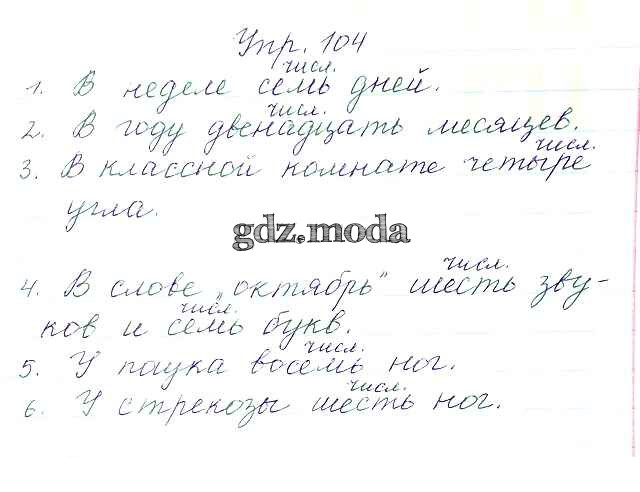 Упр. 104
числ.
1. В неделе семь дней.
числ.
2. В году двенадцать месяцев.
числ.
3. В классной комнате четыре
угла.
gdz.moda
числ.
4. В слове „октябрь" шесть зву-
числ.
ков и семь букв.
числ.
5. У паука восемь ног.
числ.
6. У стрекозы шесть ног.